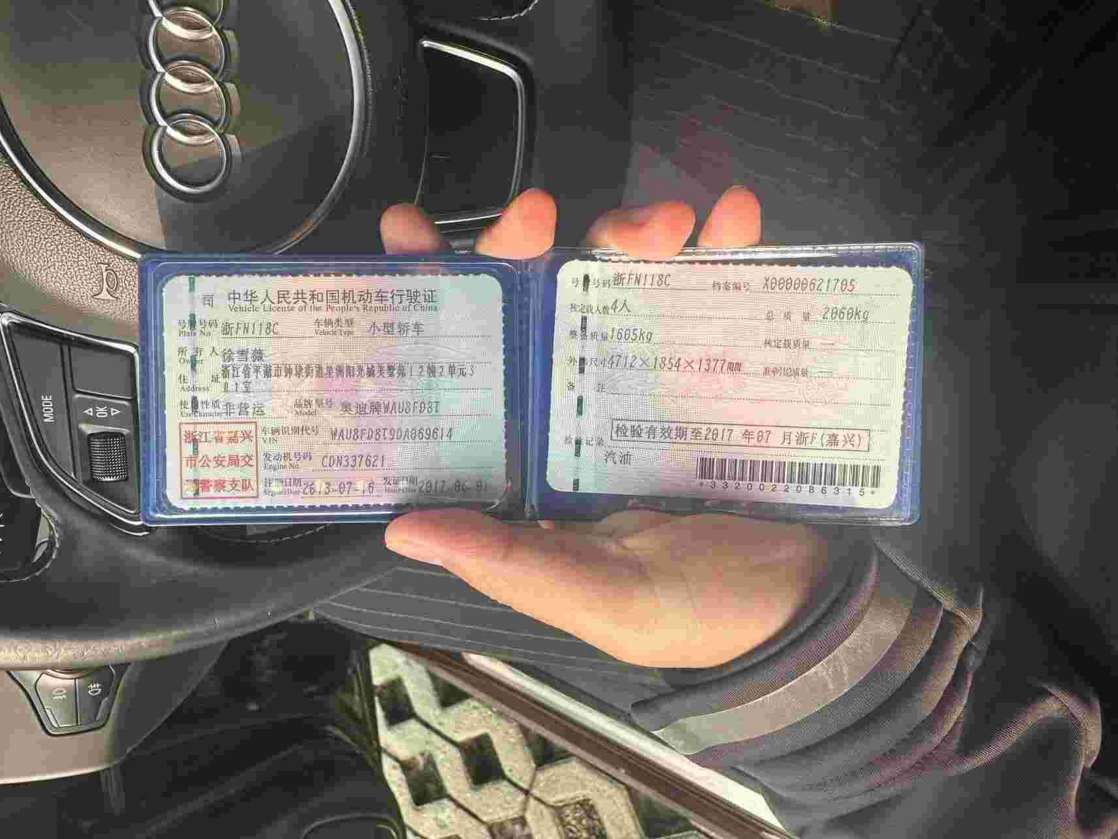 中华人民共和国机动车行驶证
Vehicle License of the People's Republic of China
号牌号码 浙FN118C 车辆类型 小型轿车
Plate No. Vehicle Type
所有人 徐雪薇
Owner
住址 浙江省平湖市钟埭街道
Address
使用性质 非营运 品牌型号 奥迪牌WAU8FD8T
Use Character Model
浙江省嘉兴市公安局交通警察支队
车辆识别代号 WAU8FD8T9DA069614
VIN
发动机号码 CDN337621
Engine No.
注册日期 2013-07-16 发证日期 2017-06-01
Register Date Issue Date
号牌号码 浙FN118C 档案编号 X00000621705
核定载人数 4人 总质量 2060kg
整备质量 1605kg 核定载质量 --
外廓尺寸 4712×1854×1377mm 准牵引总质量 --
备注
检验记录 检验有效期至2017年07月浙F(嘉兴)
汽油
*3320022086315*
MODE
OK